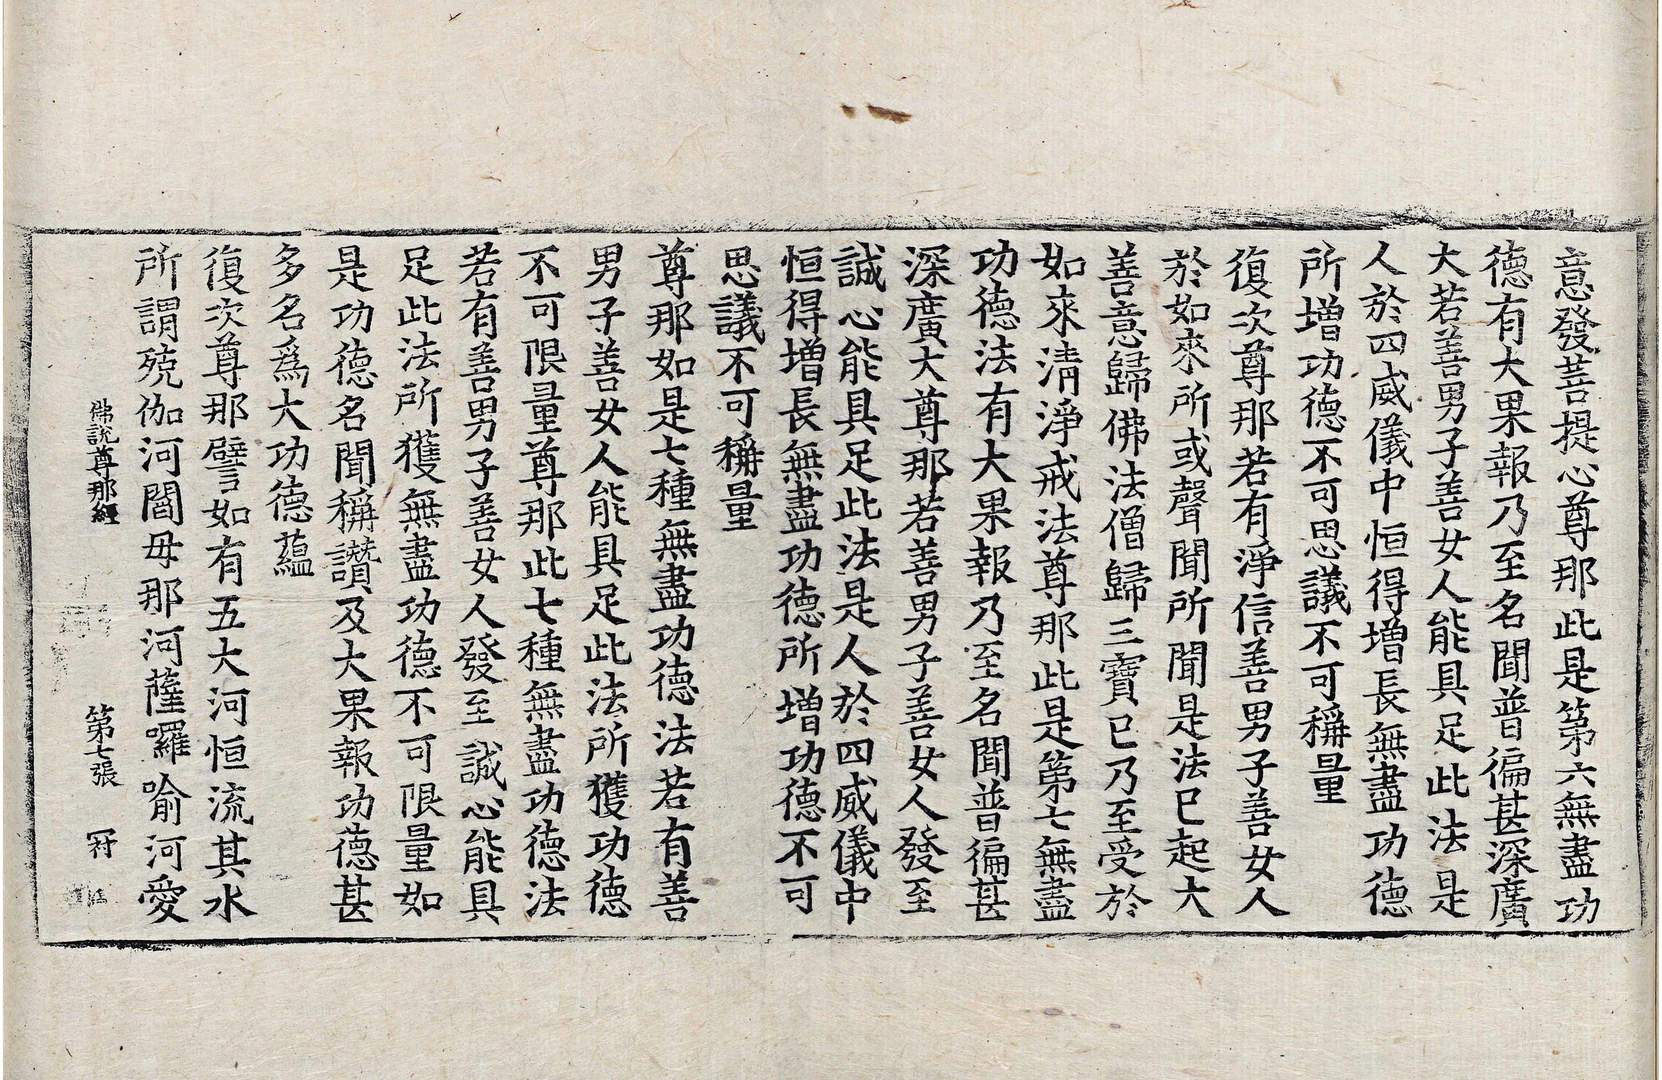 意發菩提心尊那此是第六無盡功
德有大果報乃至名聞普徧甚深廣
大若善男子善女人能具足此法是
人於四威儀中恒得增長無盡功德
所增功德不可思議不可稱量
復次尊那若有淨信善男子善女人
於如來所或聲聞所聞是法已起大
善意歸佛法僧歸三寶已乃至受於
如來清淨戒法尊那此是第七無盡
功德法有大果報乃至名聞普徧甚
深廣大尊那若善男子善女人發至
誠心能具足此法是人於四威儀中
恒得增長無盡功德所增功德不可
思議不可稱量
尊那如是七種無盡功德法若有善
男子善女人能具足此法所獲功德
不可限量尊那此七種無盡功德法
若有善男子善女人發至誠心能具
足此法所獲無盡功德不可限量如
是功德名聞稱讚及大果報功德甚
多名爲大功德蘊
復次尊那譬如有五大河恒流其水
所謂殑伽河閻毋那河薩囉喻河愛
佛說尊那經 第七張